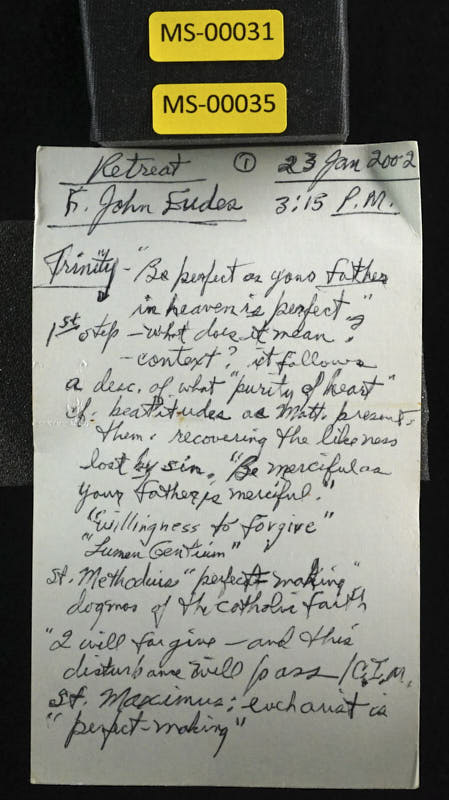 MS-00031
MS-00035
Retreat ① 23 Jan 2002
Fr. John Eudes 3:15 P.M.
Trinity - "Be perfect as your Father
in heaven is perfect",
1st step - what does it mean,
- context? it follows
a desc. of what "purity of heart"
cf. beatitudes as Matt. presents
them. recovering the likeness
lost by sin. "Be merciful as
your Father is merciful."
"willingness to forgive"
"Lumen Gentium"
St. Methodius "perfect-making"
dogmas of the Catholic faith
"I will forgive - and this
disturbance will pass / C.I.M.
St. Maximus: eucharist is
"perfect-making"